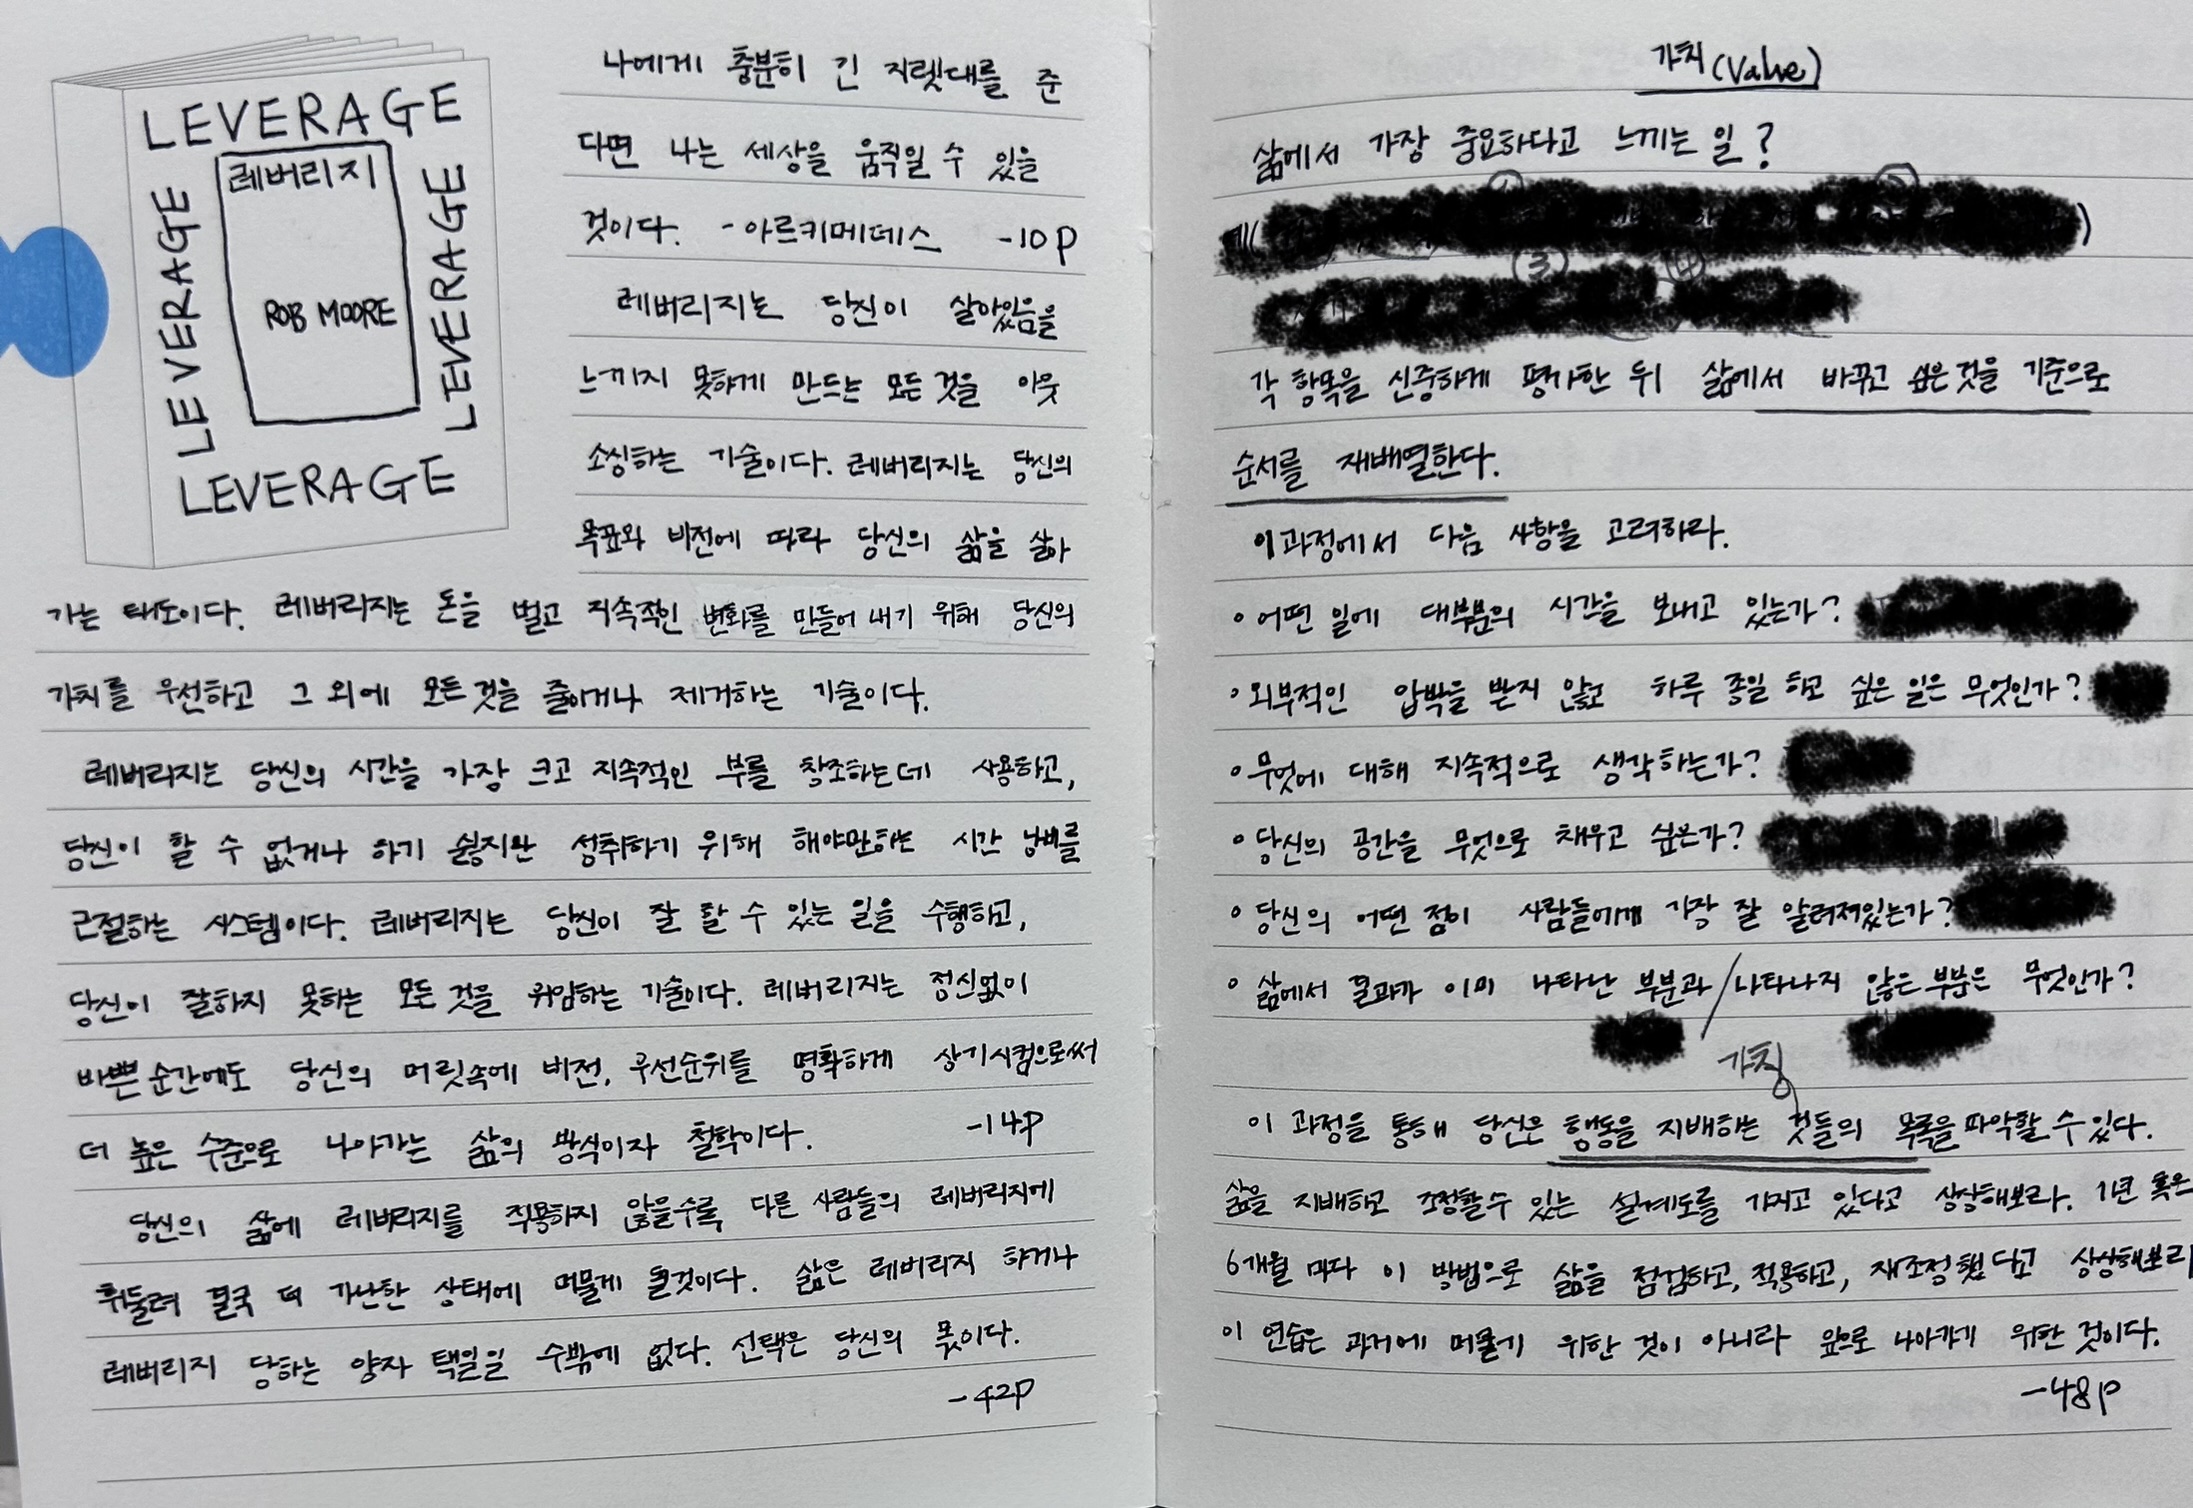 LEVERAGE
레버리지
ROB MOORE
LEVERAGE
LEVERAGE
LEVERAGE
나에게 충분히 긴 지렛대를 준
다면 나는 세상을 움직일 수 있을
것이다. -아르키메데스 -10p
레버리지는 당신이 살아있음을
느끼지 못하게 만드는 모든 것을 아웃
소싱하는 기술이다. 레버리지는 당신의
목표와 비전에 따라 당신의 삶을 살아
가는 태도이다. 레버리지는 돈을 벌고 지속적인 변화를 만들어 내기 위해 당신의
가치를 우선하고 그 외에 모든 것을 줄이거나 제거하는 기술이다.
레버리지는 당신의 시간을 가장 크고 지속적인 부를 창조하는데 사용하고,
당신이 할 수 없거나 하기 싫지만 성취하기 위해 해야만하는 시간 낭비를
근절하는 시스템이다. 레버리지는 당신이 잘 할 수 있는 일을 수행하고,
당신이 잘하지 못하는 모든 것을 위임하는 기술이다. 레버리지는 정신없이
바쁜 순간에도 당신의 머릿속에 비전, 우선순위를 명확하게 상기시킴으로써
더 높은 수준으로 나아가는 삶의 방식이자 철학이다. -14p
당신의 삶에 레버리지를 적용하지 않을수록 다른 사람들의 레버리지에
휘둘려 결국 더 가난한 상태에 머물게 될것이다. 삶은 레버리지 하거나
레버리지 당하는 양자 택일일 수밖에 없다. 선택은 당신의 몫이다.
-42p
가치(Value)
삶에서 가장 중요하다고 느끼는 일?
③ ④
각 항목을 신중하게 평가한 뒤 삶에서 바꾸고 싶은 것을 기준으로
순서를 재배열한다.
이과정에서 다음 사항을 고려하라.
• 어떤 일에 대부분의 시간을 보내고 있는가?
• 외부적인 압박을 받지 않고 하루 종일 하고 싶은 일은 무엇인가?
• 무엇에 대해 지속적으로 생각하는가?
• 당신의 공간을 무엇으로 채우고 싶은가?
• 당신의 어떤 점이 사람들에게 가장 잘 알려져있는가?
• 삶에서 결과가 이미 나타난 부분과/나타나지 않은 부분은 무엇인가?
가칭
이 과정을 통해 당신은 행동을 지배하는 것들의 목록을 파악할 수 있다.
삶을 지배하고 조정할수 있는 설계도를 가지고 있다고 상상해보라. 1년 혹은
6개월 마다 이 방법으로 삶을 점검하고, 적용하고, 재조정했다고 상상해보라
이 연습은 과거에 머물기 위한 것이 아니라 앞으로 나아가기 위한 것이다.
-48p